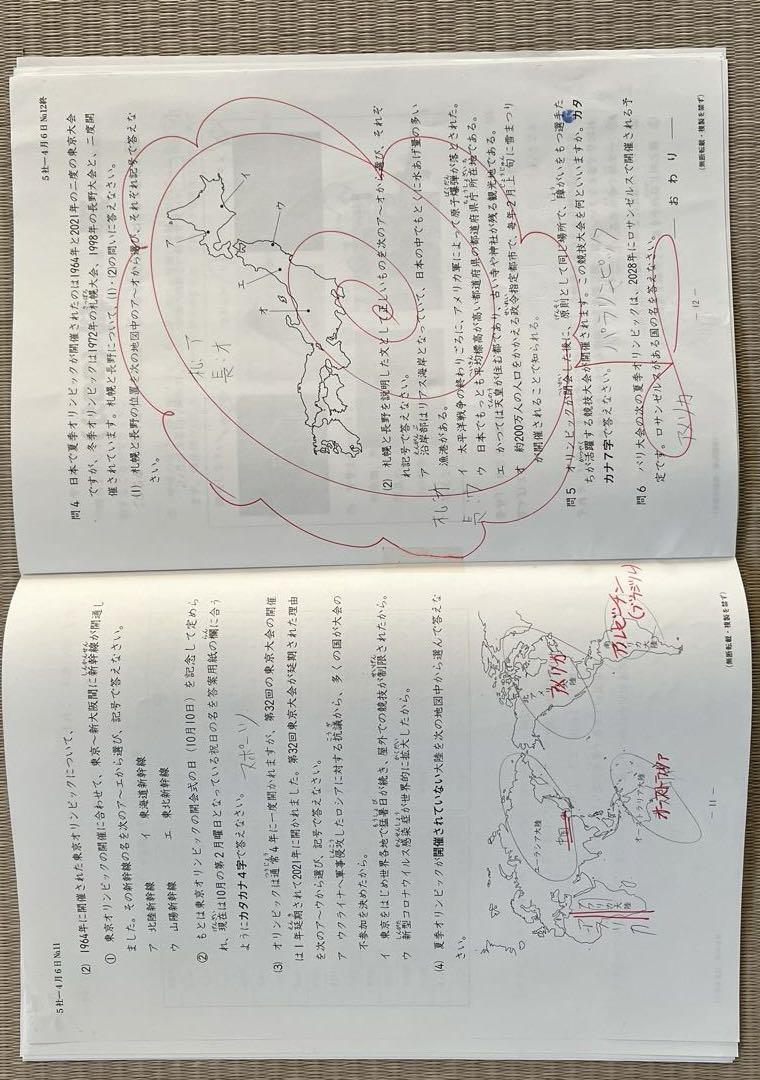 5社―4月6日№11
(2) 1964年に開催された東京オリンピックについて、
① 東京オリンピックの開催に合わせて、東京～新大阪間に新幹線が開通し
ました。その新幹線の名を次のア～エから選び、記号で答えなさい。
ア 北陸新幹線 イ 東海道新幹線
ウ 山陽新幹線 エ 東北新幹線
② もとは東京オリンピックの開会式の日（10月10日）を記念して定めら
れ、現在は10月の第2月曜日となっている祝日の名を答案用紙の欄に合う
ようにカタカナ4字で答えなさい。 スポーツ
(3) オリンピックは通常4年に一度開かれますが、第32回の東京大会の開催
は1年延期されて2021年に開かれました。第32回東京大会が延期された理由
を次のア～ウから選び、記号で答えなさい。
ア ウクライナへ軍事侵攻したロシアに対する抗議から、多くの国が大会の
不参加を決めたから。
イ 東京をはじめ世界各地で猛暑日が続き、屋外での競技が制限されたから。
ウ 新型コロナウイルス感染症が世界的に拡大したから。
(4) 夏季オリンピックが開催されていない大陸を次の地図中から選んで答えな
さい。
ユーラシア大陸
中国
アフリカ大陸
オーストラリア大陸
オーストラリア
アメリカ
南アメリカ大陸
アルゼンチン
(ブラジル)
― 11 ―
(無断転載・複製を禁ず)
5社―4月6日№12終
問4 日本で夏季オリンピックが開催されたのは1964年と2021年の二度の東京大会
ですが、冬季オリンピックは1972年の札幌大会、1998年の長野大会と、二度開
催されています。札幌と長野について、(1)・(2)の問いに答えなさい。
(1) 札幌と長野の位置を次の地図中のア～オから選び、それぞれ記号で答えな
さい。
ア
イ
ウ
エ
オ
札:ア
長:オ
(2) 札幌と長野を説明した文として正しいものを次のア～オから選び、それぞ
れ記号で答えなさい。
ア 沿岸部はリアス海岸となっていて、日本の中でもとくに水あげ量の多い
漁港がある。
イ 太平洋戦争の終わりごろに、アメリカ軍によって原子爆弾が落とされた。
ウ 日本でもっとも平均標高が高い都道府県の都道府県庁所在地である。
エ かつては天皇が住む都であり、古い寺や神社が残る観光地である。
オ 約200万人の人口をかかえる政令指定都市で、毎年2月上旬に雪まつり
が開催されることで知られる。
札:オ
長:ウ
問5 オリンピックが閉会した後に、原則として同じ場所で、障がいをもつ選手た
ちが活躍する競技大会が開催されます。この競技大会を何といいますか。カタ
カナ7字で答えなさい。 パラリンピック
問6 パリ大会の次の夏季オリンピックは、2028年にロサンゼルスで開催される予
定です。ロサンゼルスがある国の名を答えなさい。
アメリカ
おわり
― 12 ―
(無断転載・複製を禁ず)